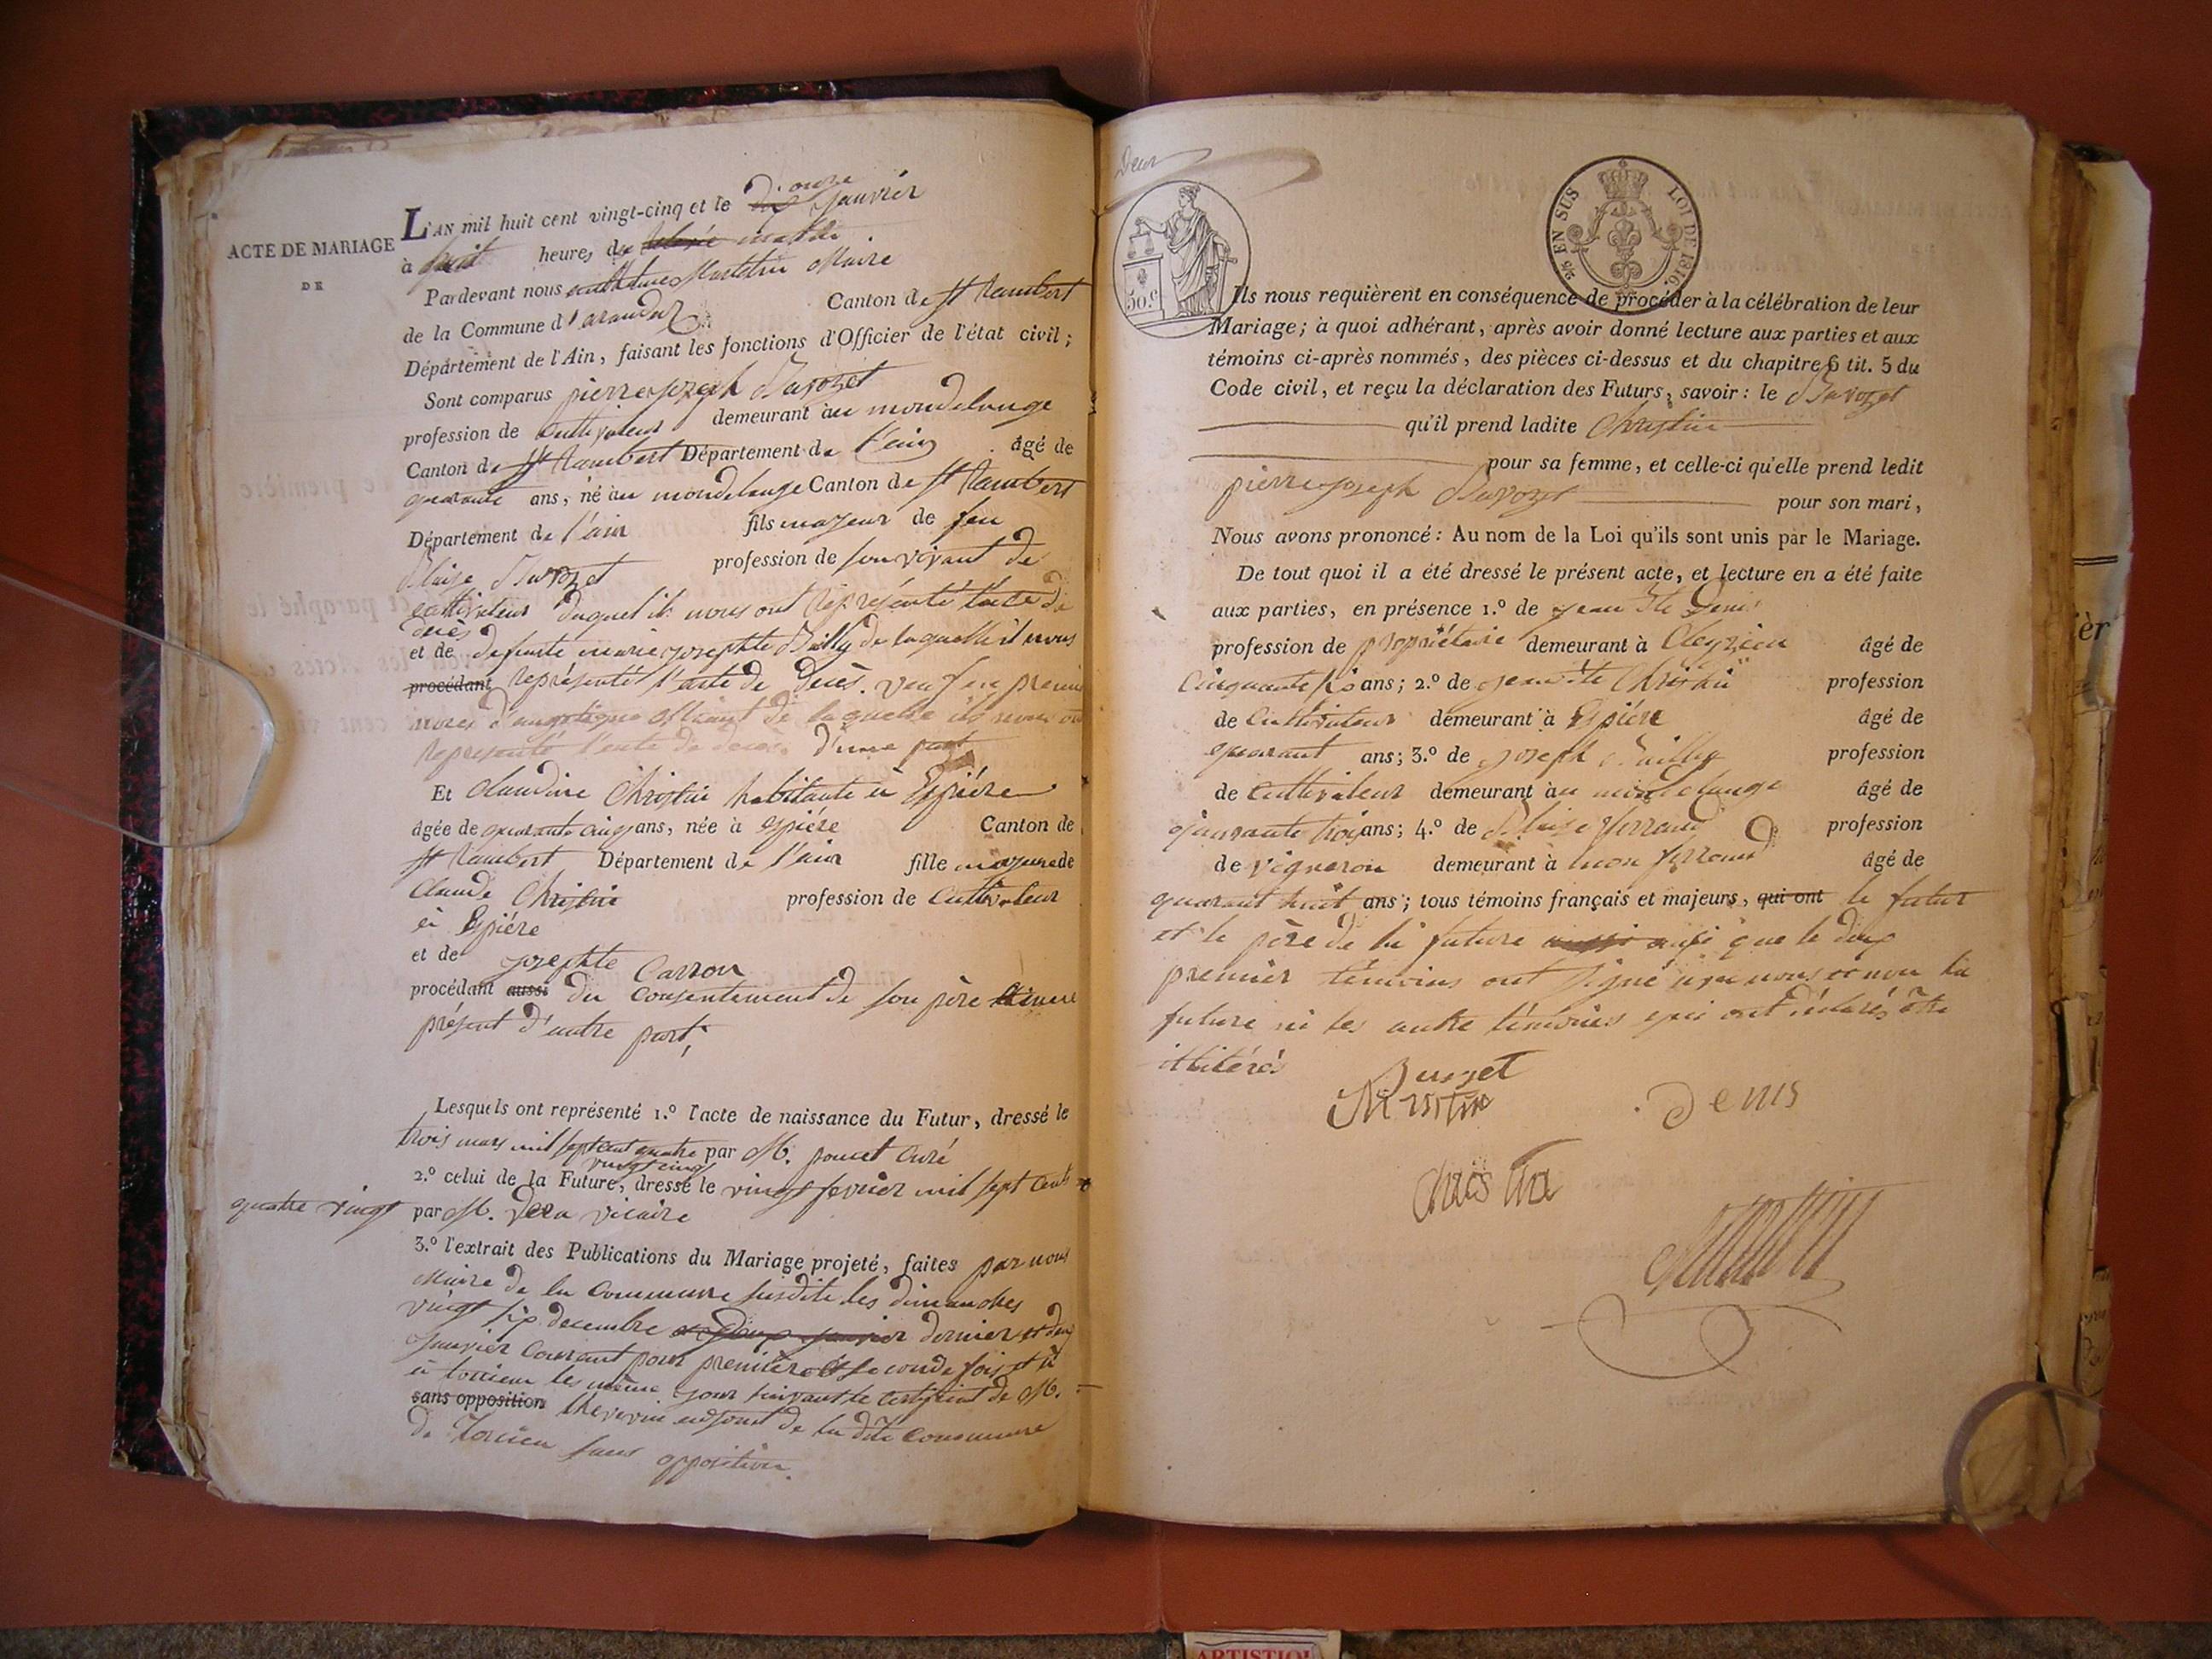 ACTE DE MARIAGE
DE
L'AN mil huit cent vingt-cinq et le onze janvier
à huit heures du matin
Pardevant nous Martelin Maire
de la Commune d'arandas Canton de St Rambert
Département de l'Ain, faisant les fonctions d'Officier de l'état civil;
Sont comparus pierre joseph
profession de Cultivateur demeurant au mondelange
Canton de St Rambert Département de l'ain âgé de
quarante ans, né au mondelange Canton de St Rambert
Département de l'ain fils majeur de feu
Blaise profession de son vivant de
cultivateur duquel il nous ont représenté l'acte de
décès
et de defunte marie josephte Bailly de laquelle il nous
procédant représenté l'acte de décès. veuf en premier
noces d'angelique de laquelle ils nous ont
representé l'acte de deces. d'une part
Et Claudine Christin habitante à Espiére
âgée de quarante cinq ans, née à espiére Canton de
St Rambert Département de l'ain fille majeure de
Claude Christin profession de Cultivateur
à Espiére
et de josephte Carron
procédant aussi du consentement de son père
présent d'autre part;
Lesquels ont représenté 1.º l'acte de naissance du Futur, dressé le
trois mars mil sept cent quatre par M. poncet curé
vingt cinq
2.º celui de la Future, dressé le vingt fevrier mil sept cents
quatre vingt par M. vicaire
3.º l'extrait des Publications du Mariage projeté, faites par nous
Maire de la Commune susdite les dimanches
vingt six decembre dernier et deux
janvier courant pour première et seconde fois et à
à torcieu les même jour suivant le certificat de M.
sans opposition adjoint de la dite commune
de Torcieu sans opposition.
Deux
50.c
25 EN SUS LOI DE 1816.
Ils nous requièrent en conséquence de procéder à la célébration de leur
Mariage; à quoi adhérant, après avoir donné lecture aux parties et aux
témoins ci-après nommés, des pièces ci-dessus et du chapitre 6 tit. 5 du
Code civil, et reçu la déclaration des Futurs, savoir: le
qu'il prend ladite Christin
pour sa femme, et celle-ci qu'elle prend ledit
pierre joseph pour son mari,
Nous avons prononcé: Au nom de la Loi qu'ils sont unis par le Mariage.
De tout quoi il a été dressé le présent acte, et lecture en a été faite
aux parties, en présence 1.º de jean Bte Denis
profession de propriétaire demeurant à Cleyzieu âgé de
Cinquante six ans; 2.º de jean Bte Christin profession
de Cultivateur demeurant à Espiére âgé de
quarant ans; 3.º de joseph Bailly profession
de Cultivateur demeurant au mondelange âgé de
quarante trois ans; 4.º de Blaise ferrand profession
de vigneron demeurant à mon ferrand âgé de
quarant huit ans; tous témoins français et majeurs, qui ont le futur
et le père de la future ainsi que le deux
premier témoins ont signé avec nous et non la
future ni les autre témoins qui ont déclarés être
illitérés
Christin
Denis